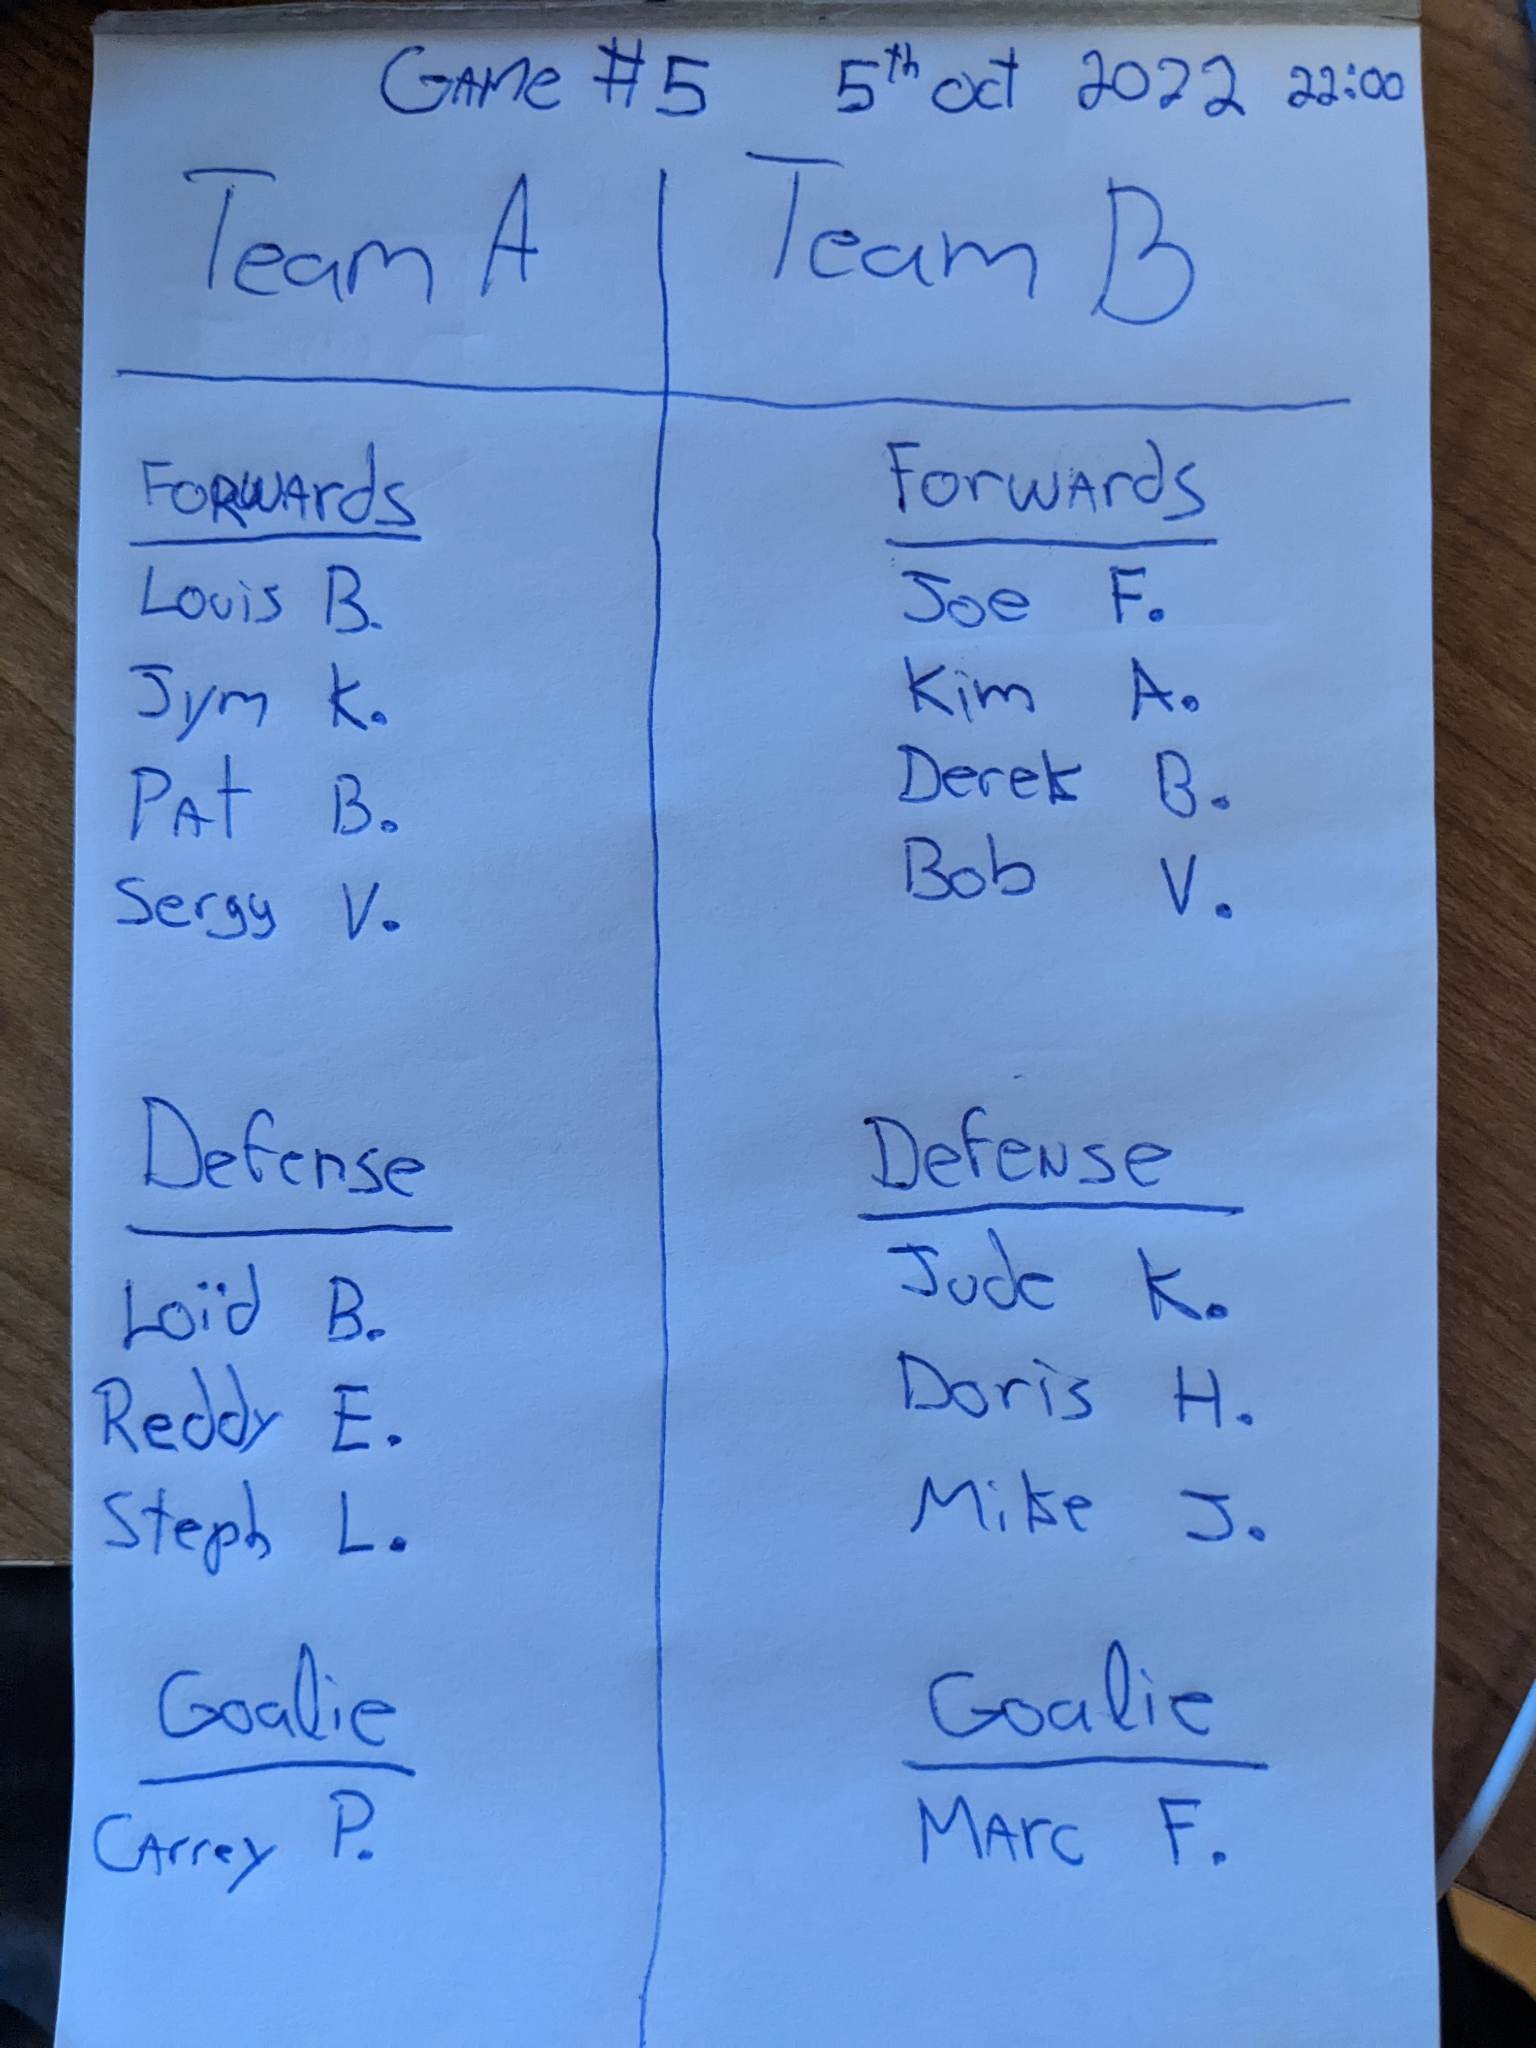 GAME #5 5th oct 2022 22:00
Team A
Forwards
Louis B.
Jym K.
PAt B.
Sergy V.
Defense
Loïd B.
Reddy E.
Steph L.
Goalie
CArrey P.
Team B
Forwards
Joe F.
Kim A.
Derek B.
Bob V.
Defense
Jude K.
Doris H.
Mike J.
Goalie
MArc F.